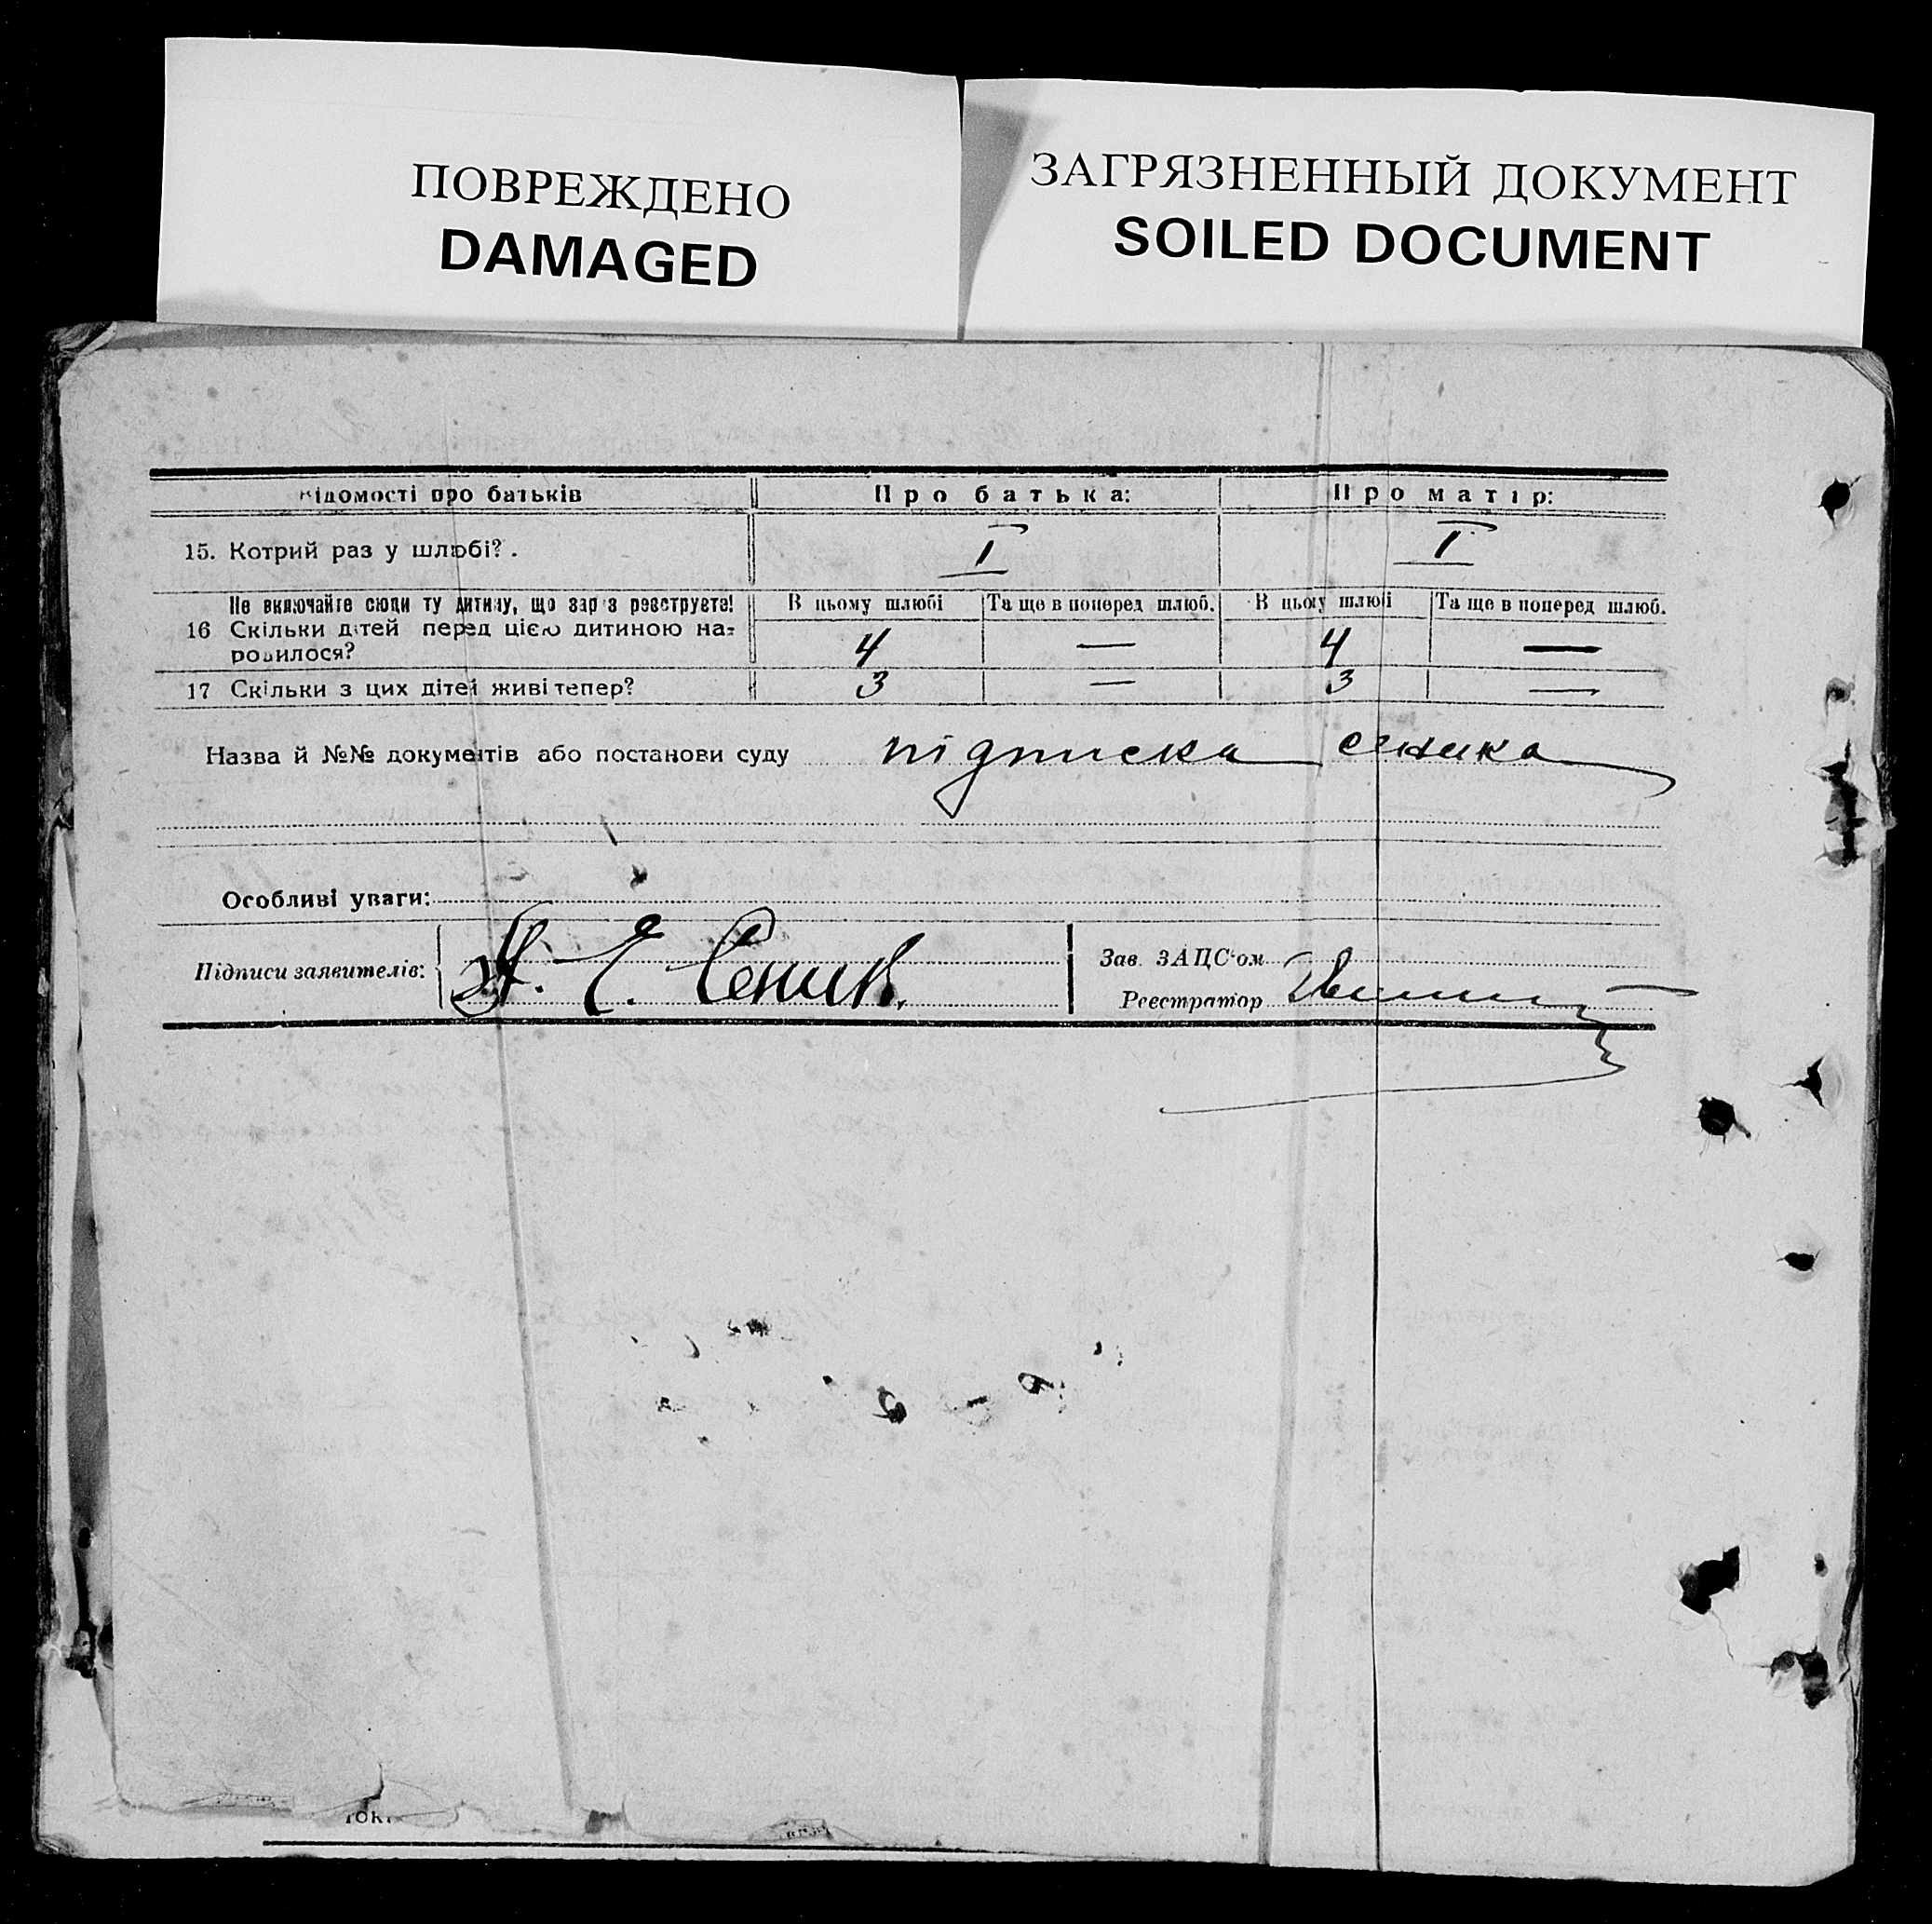 ПОВРЕЖДЕНО
DAMAGED
ЗАГРЯЗНЕННЫЙ ДОКУМЕНТ
SOILED DOCUMENT
Відомості про батьків
Про батька:
Про матір:
15. Котрий раз у шлюбі? .
I
I
Не включайте сюди ту дитину, що зараз реєструєте!
В цьому шлюбі
Та ще в поперед шлюб.
В цьому шлюбі
Та ще в поперед шлюб.
16 Скільки дітей перед цією дитиною на-
родилося?
4 — 4 —
17 Скільки з цих дітей живі тепер?
3 — 3 —
Назва й №№ документів або постанови суду підписка сеника
Особливі уваги:
Підписи заявителів: Є. Сеник.
Зав. ЗАЦС'ом
Реєстратор